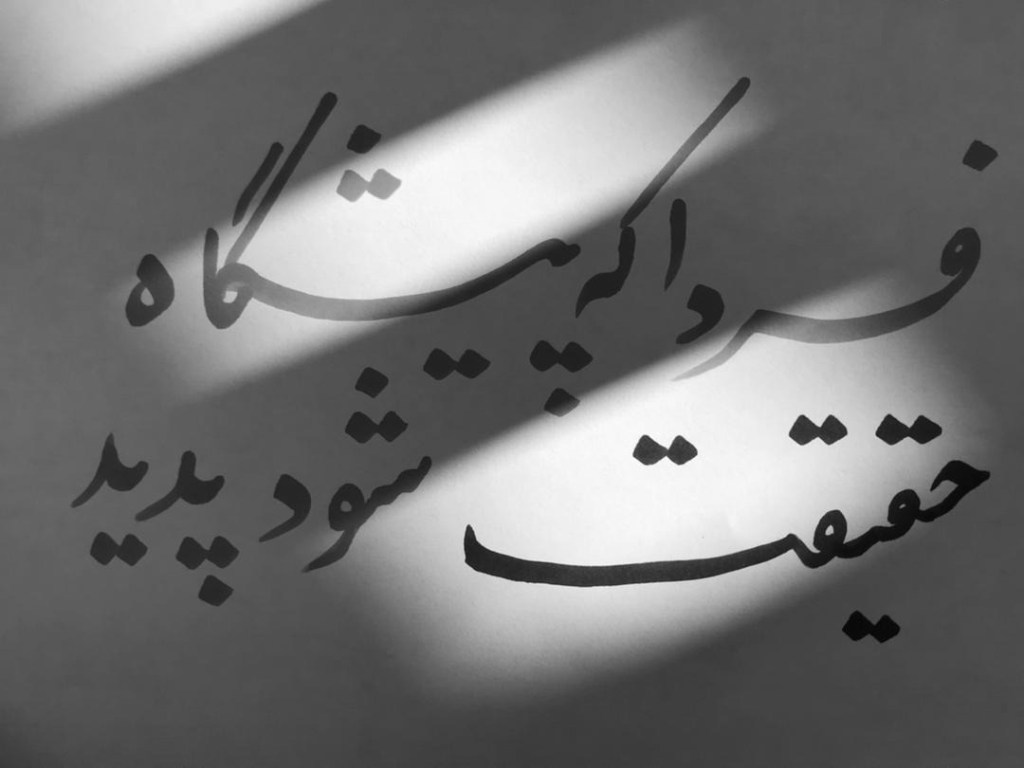 فردا که پیشگاه
حقیقت شود پدید